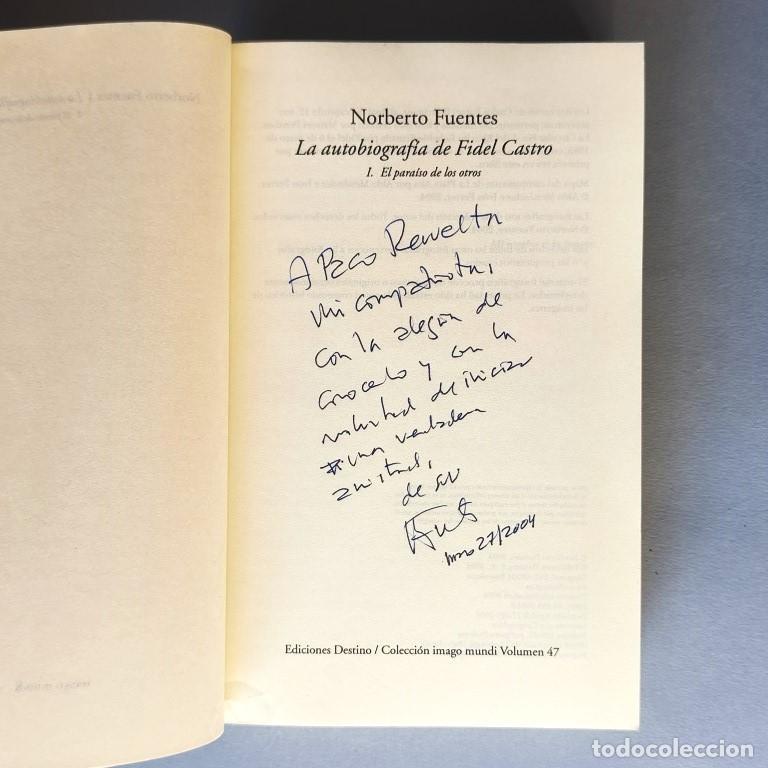 Norberto Fuentes
La autobiografía de Fidel Castro
I. El paraíso de los otros
A Paco Revuelta
mi compatriota,
con la alegría de
conocerlo y con la
voluntad de iniciar
una verdadera
amistad,
de su
27/2004
Ediciones Destino / Colección imago mundi Volumen 47
todocoleccion